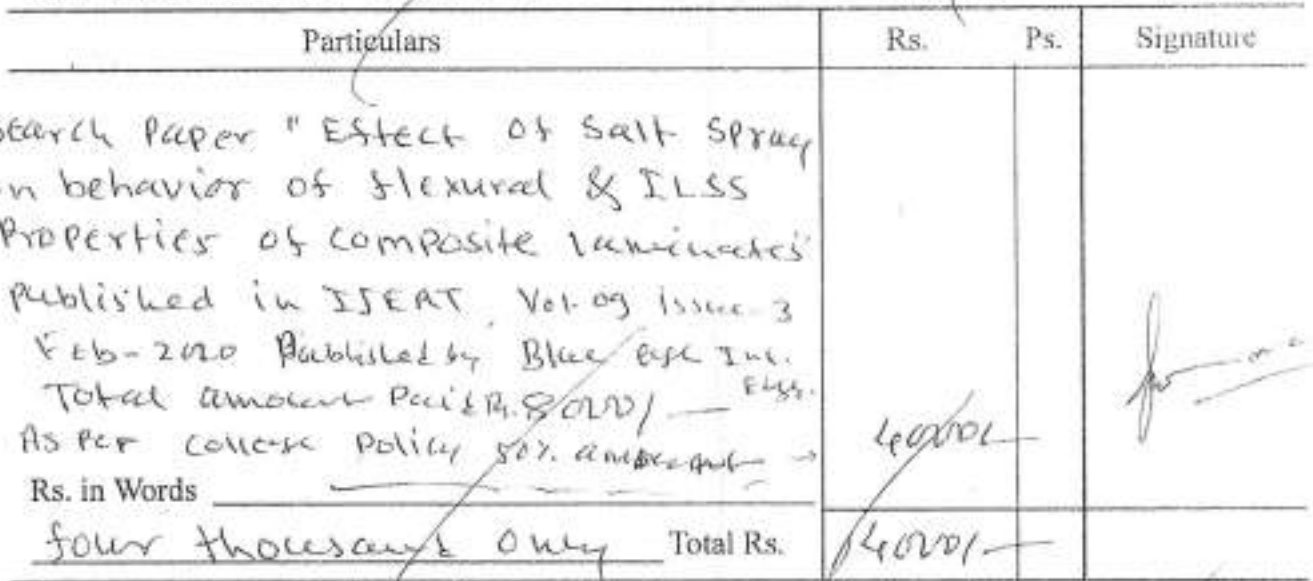 Particulars Rs. Ps. Signature
search Paper " Effect of Salt Spray
on behavior of flexural & ILSS
Properties of composite laminates"
Published in IJEAT Vol-09 issue-3
Feb-2020 Published by Blue eye Int.
Total amount Paid Rs. 8000/-
As Per college Policy 50% amount → 4000/-
Rs. in Words
four thousand only Total Rs. 4000/-